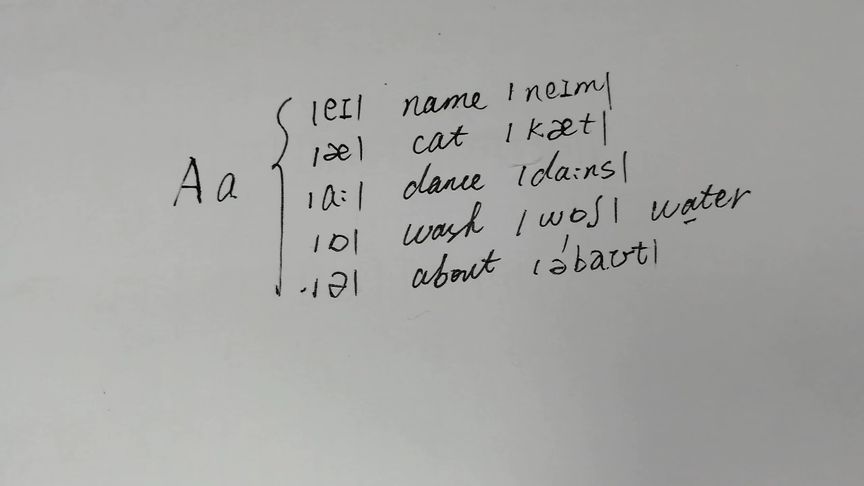 Aa
|eɪ| name |neɪm|
|æ| cat |kæt|
|ɑ:| dance |dɑ:ns|
|ɒ| wash |wɒʃ| water
|ə| about |ə'baʊt|